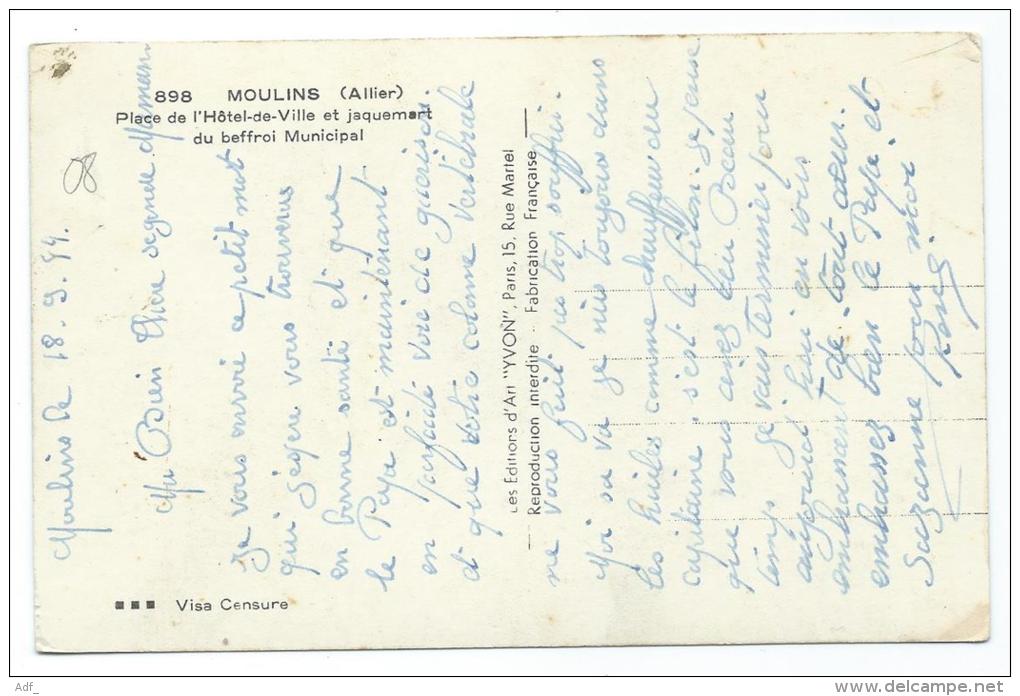 898 MOULINS (Allier)
Place de l'Hôtel-de-Ville et jaquemart
du beffroi Municipal
08
Les Editions d'Art "YVON", Paris, 15, Rue Martel
Reproduction interdite - Fabrication Française
Visa Censure
Moulins le 18.9.44.
Ma Bien Chère segnde Maman
Je vous envoie ce petit mot
qui j'espère vous trouveras
en bonne santé et que
le Papa est maintenant
en parfaite voie de guerison.
et que votre colonne vertébrale
ne vous fait pas trop souffrir.
Moi sa va je suis toujours dans
les huiles comme chauffeur du
capitaine s'est le filon. je pense
que vous avez bien Beau
temps je vais terminer pour
aujourd'hui en vous
embrassant de tout cœur.
embrasser bien le Papa et
Suzanne pour moi
René
Adf_
www.delcampe.net